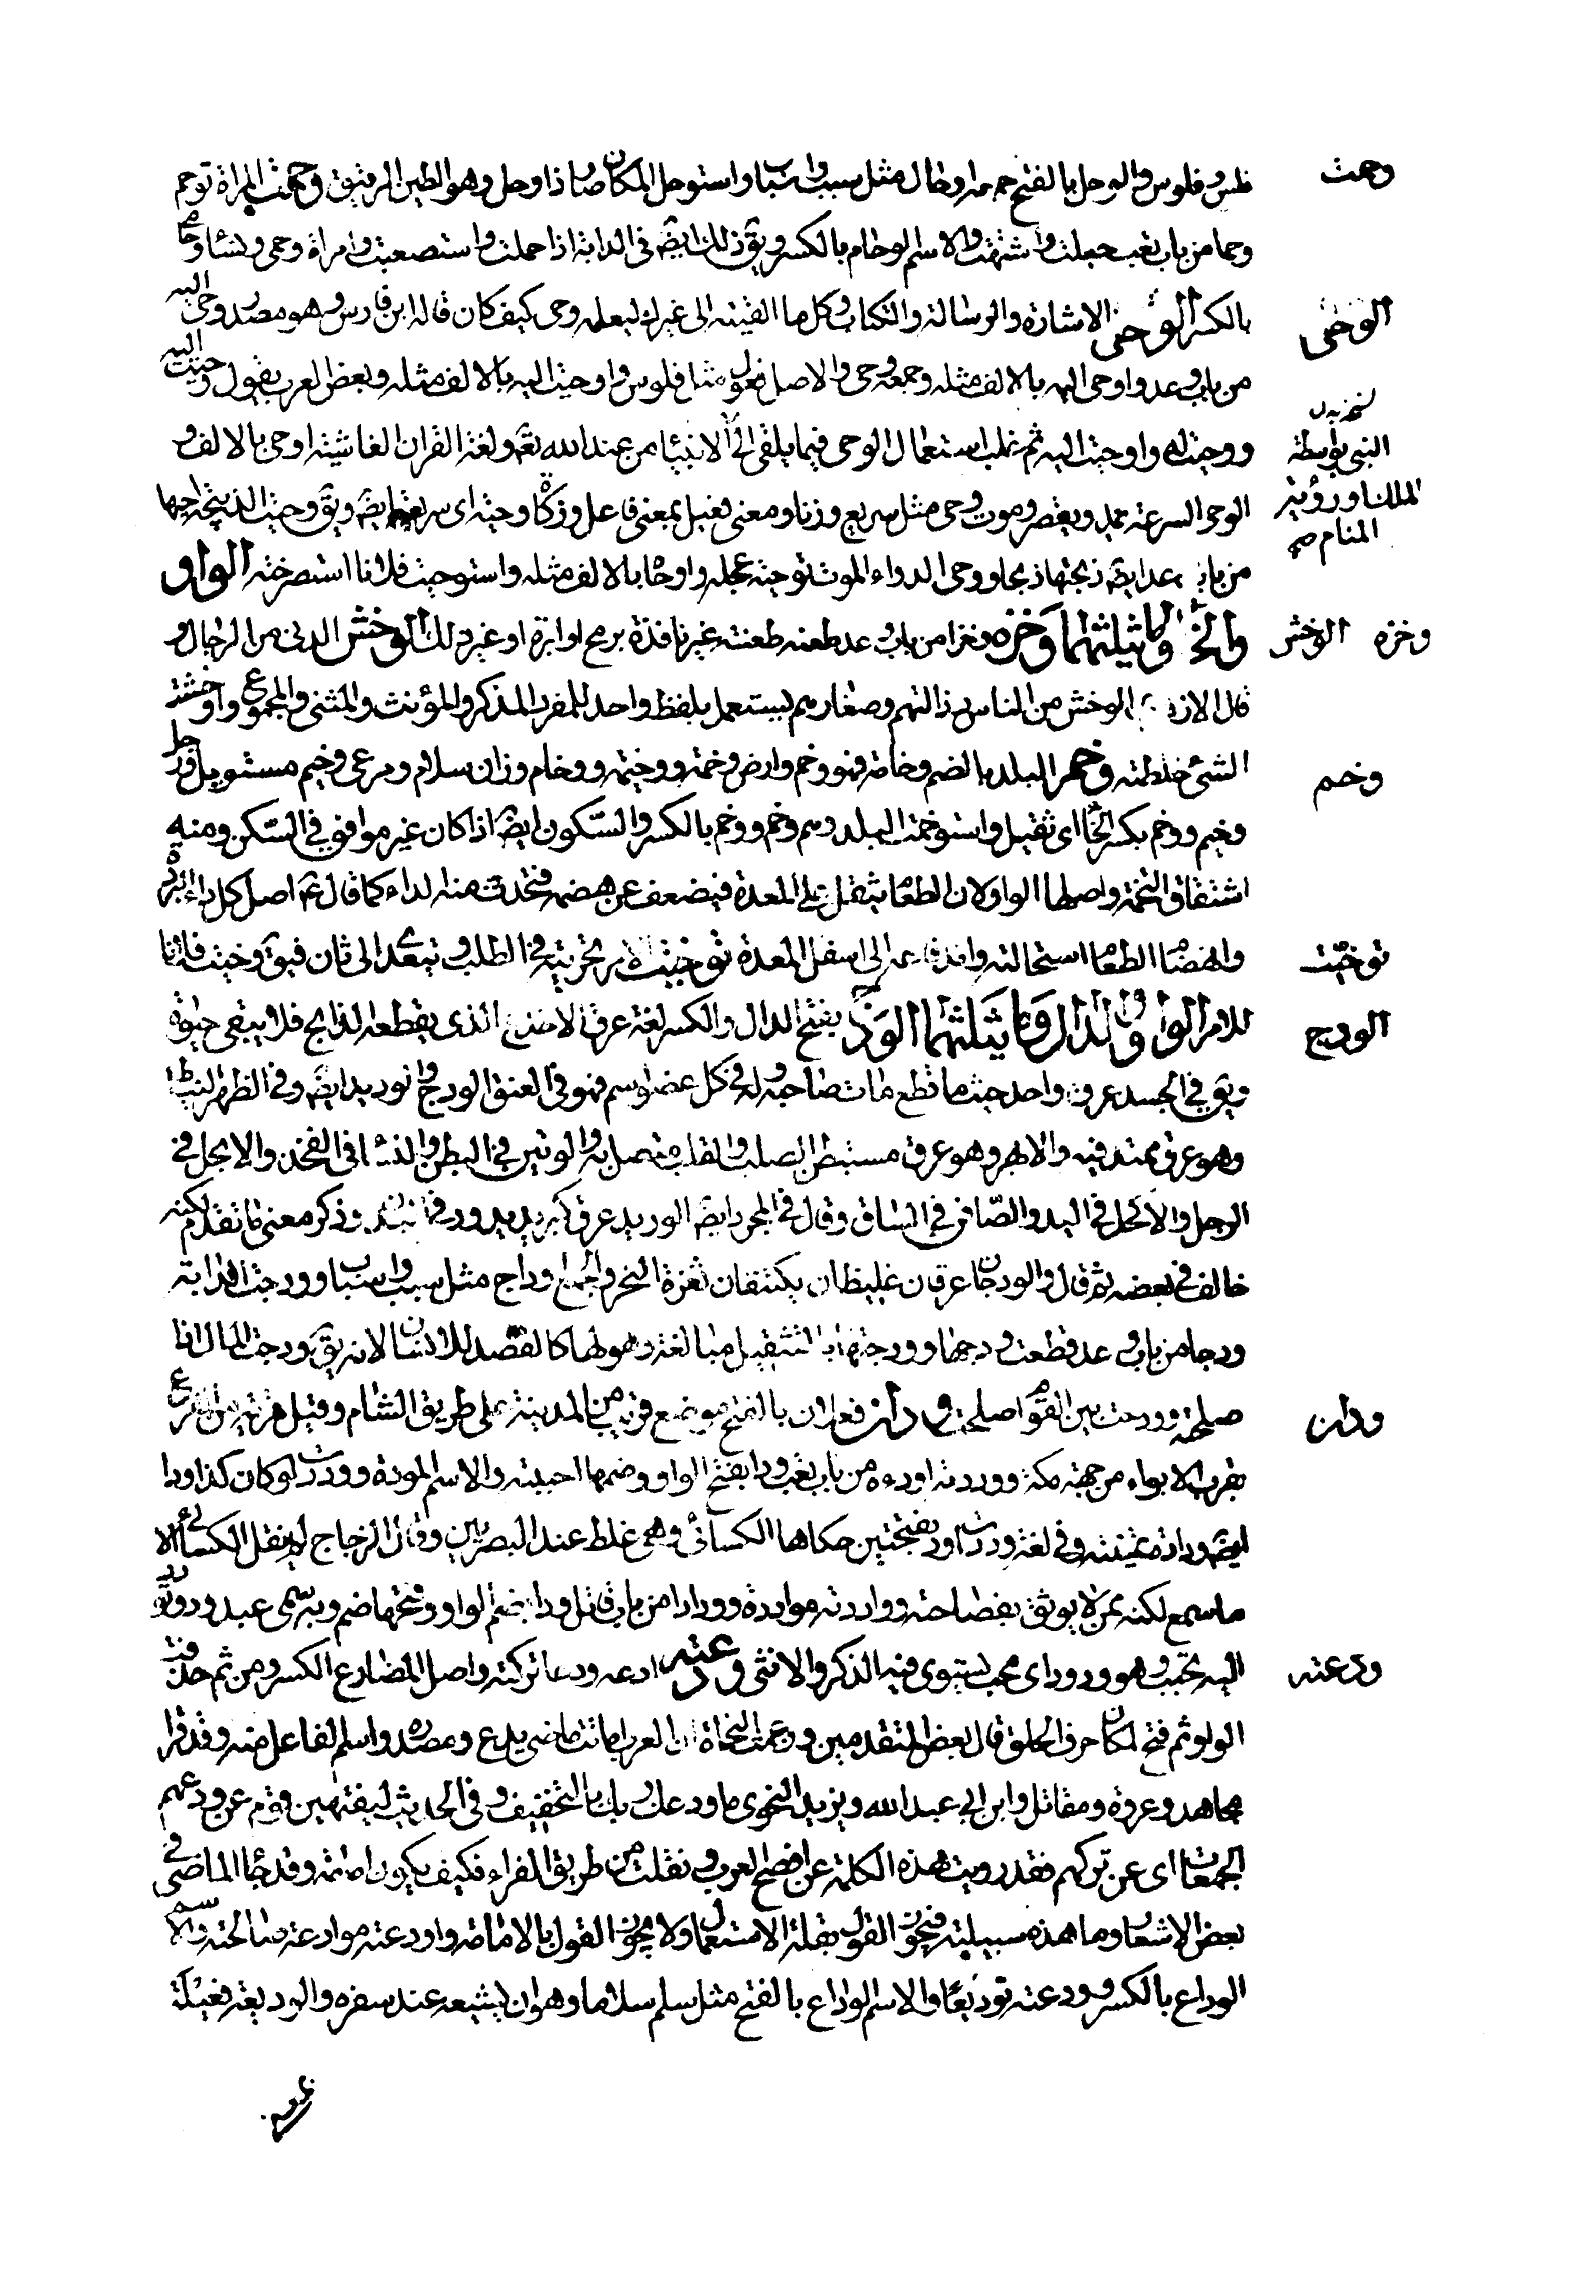 وحمت
فلس وفلوس والوحل بالفتح جمعه اوحال مثل سبب واسباب واستوحل المكان صار ذا وحل وهو الطين الرقيق وحمت المراة توحم
وحما من باب تعب حبلت واشتهت والاسم الوحام بالكسر ويق ذلك ايضه في الدابة اذا حملت واستصعبت وامراة وحمى ونساء وحام
الوحى
بالكسر الوحى الاشارة والرسالة والكتابة وكل ما القيته الى غيرك ليعلمه وحى كيف كان قاله ابن فارس وهو مصدر وحى اليه
من باب وعد واوحى اليه بالالف مثله وجمعه وحى والاصل فعول مثل فلوس واوحيت اليه بالالف مثله وبعض العرب يقول وحيت اليه
ووحيت له واوحيت اليه ثم غلب استعمال الوحى فيما يلقى الى الانبياء من عند الله تعه ولغة القران الفاشية اوحى بالالف و
النبى بواسطة
الملك او رؤية
المنام صح
الوحى السرعة يمد ويقصر وموت وحى مثل سريع وزنا ومعنى فعيل بمعنى فاعل وزكاة وحية اى سريعة ايضه ويق وحيت الذبيحة احيها
من باب وعد ايضه ذبحتها ذبحا ووحى الدواء الموت توحية عجله واوحاه بالالف مثله واستوحيت فلانا استصرخته الواو
وخزه الوخش
والخاء وما يثلثهما وخزه وخزا من باب وعد طعنه طعنة غير نافذة برمح او ابرة او غير ذلك الوخش الدنى من الرجال و
قال الازهرى الوخش من الناس رذالتهم وصغارهم يستعمل بلفظ واحد للمفرد المذكر والمؤنث والمثنى والمجموع واوخشت
وخم
الشئ خلطته وخم البلد بالضم وخامة فهو وخم وارض وخمة ووخيمة ووخام وزان سلام ومرعى وخيم مستوبل ورجل
وخيم ووخم بكسر الخاء اى ثقيل واستوخمت البلد وهم وخم ووخم بالكسر والسكون ايضه اذا كان غير موافق في السكن ومنه
اشتقاق التخمة واصلها الواو لان الطعام يثقل على المعدة فيضعف عن هضمه فتحدث منه الداء كما قال عم اصل كل داء البردة
توخيت
وانهضام الطعام استحالته واندفاعه الى اسفل المعدة توخيت الامر تحريته في الطلب ويتعدى الى ثان فيق وخيت فلانا
الودج
للامر الواو والدال وما يثلثهما الودج بفتح الدال والكسر لغة عرق الاخدع الذى يقطعه الذابح فلا يبقى حيوة
ويق في الجسد عرق واحد حيث ما قطع مات صاحبه وله في كل عضو اسم فهو في العنق الودج والوريد ايضه وفي الظهر النياط
وهو عرق يمتد فيه والابهر وهو عرق مستبطن الصلب والقلب متصل به والوتين في البطن والنسا في الفخذ والابجل في
الرجل والاكحل في اليد والصافن في الساق وقال في المجرد ايضه الوريد عرق كبير يدور في البدن وذكر معنى ما تقدم لكنه
خالف في بعضه ثم قال والودجان عرقان غليظان يكتنفان ثغرة النحر والجمع اوداج مثل سبب واسباب وودجت الدابة
ودجا من باب وعد قطعت ودجها وودجتها بالتثقيل مبالغة وهو لها كالفصد للانسان لانه يق ودجت المال اذا
ودان
صلحته وودجت بين القوم اصلحت ودان فعلان بالفتح موضع قريب من المدينة على طريق الشام وقيل قرية من الفرع
بقرب الابواء من جهة مكة ووددته اوده من باب تعب ودا بفتح الواو وضمها احببته والاسم المودة ووددت لو كان كذا ودا
ايضه وودادة تمنيته وفي لغة وددت اود بفتحتين حكاها الكسائى وهى غلط عند البصريين وقال الزجاج لم ينقل الكسائى الا
ما سمع لكنه ممن لا يوثق بفصاحته وواددته موادة وودادا من باب قاتل وود بضم الواو وفتحها صنم وبه سمى عبد ود وتودد
ودعته
اليه تحبب وهو ودود اى محب يستوى فيه الذكر والانثى ودعته ادعه ودعا تركته واصل المضارع الكسر ومن ثم حذفت
الواو ثم فتح لمكان حرف الحلق قال بعض المتقدمين وزعمت النحاة ان العرب اماتت ماضى يدع ومصدره واسم الفاعل منه وقد قرا
مجاهد وعروة ومقاتل وابن ابى عبد الله ويزيد النحوى ما ودعك ربك بالتخفيف وفي الحديث لينتهين قوم عن ودعهم
الجمعات اى عن تركهم فقد رويت هذه الكلمة عن افصح العرب ونقلت من طريق القراء فكيف يكون اماتة وقد جاء الماضى في
بعض الاشعار وما هذه سبيله فيجوز القول بقلة الاستعمال ولا يجوز القول بالاماتة وادعته موادعة صالحته والاسم
الوداع بالكسر وودعته توديعا والاسم الوداع بالفتح مثل سلم سلاما وهو ان يشيعه عند سفره والوديعة فعيلة